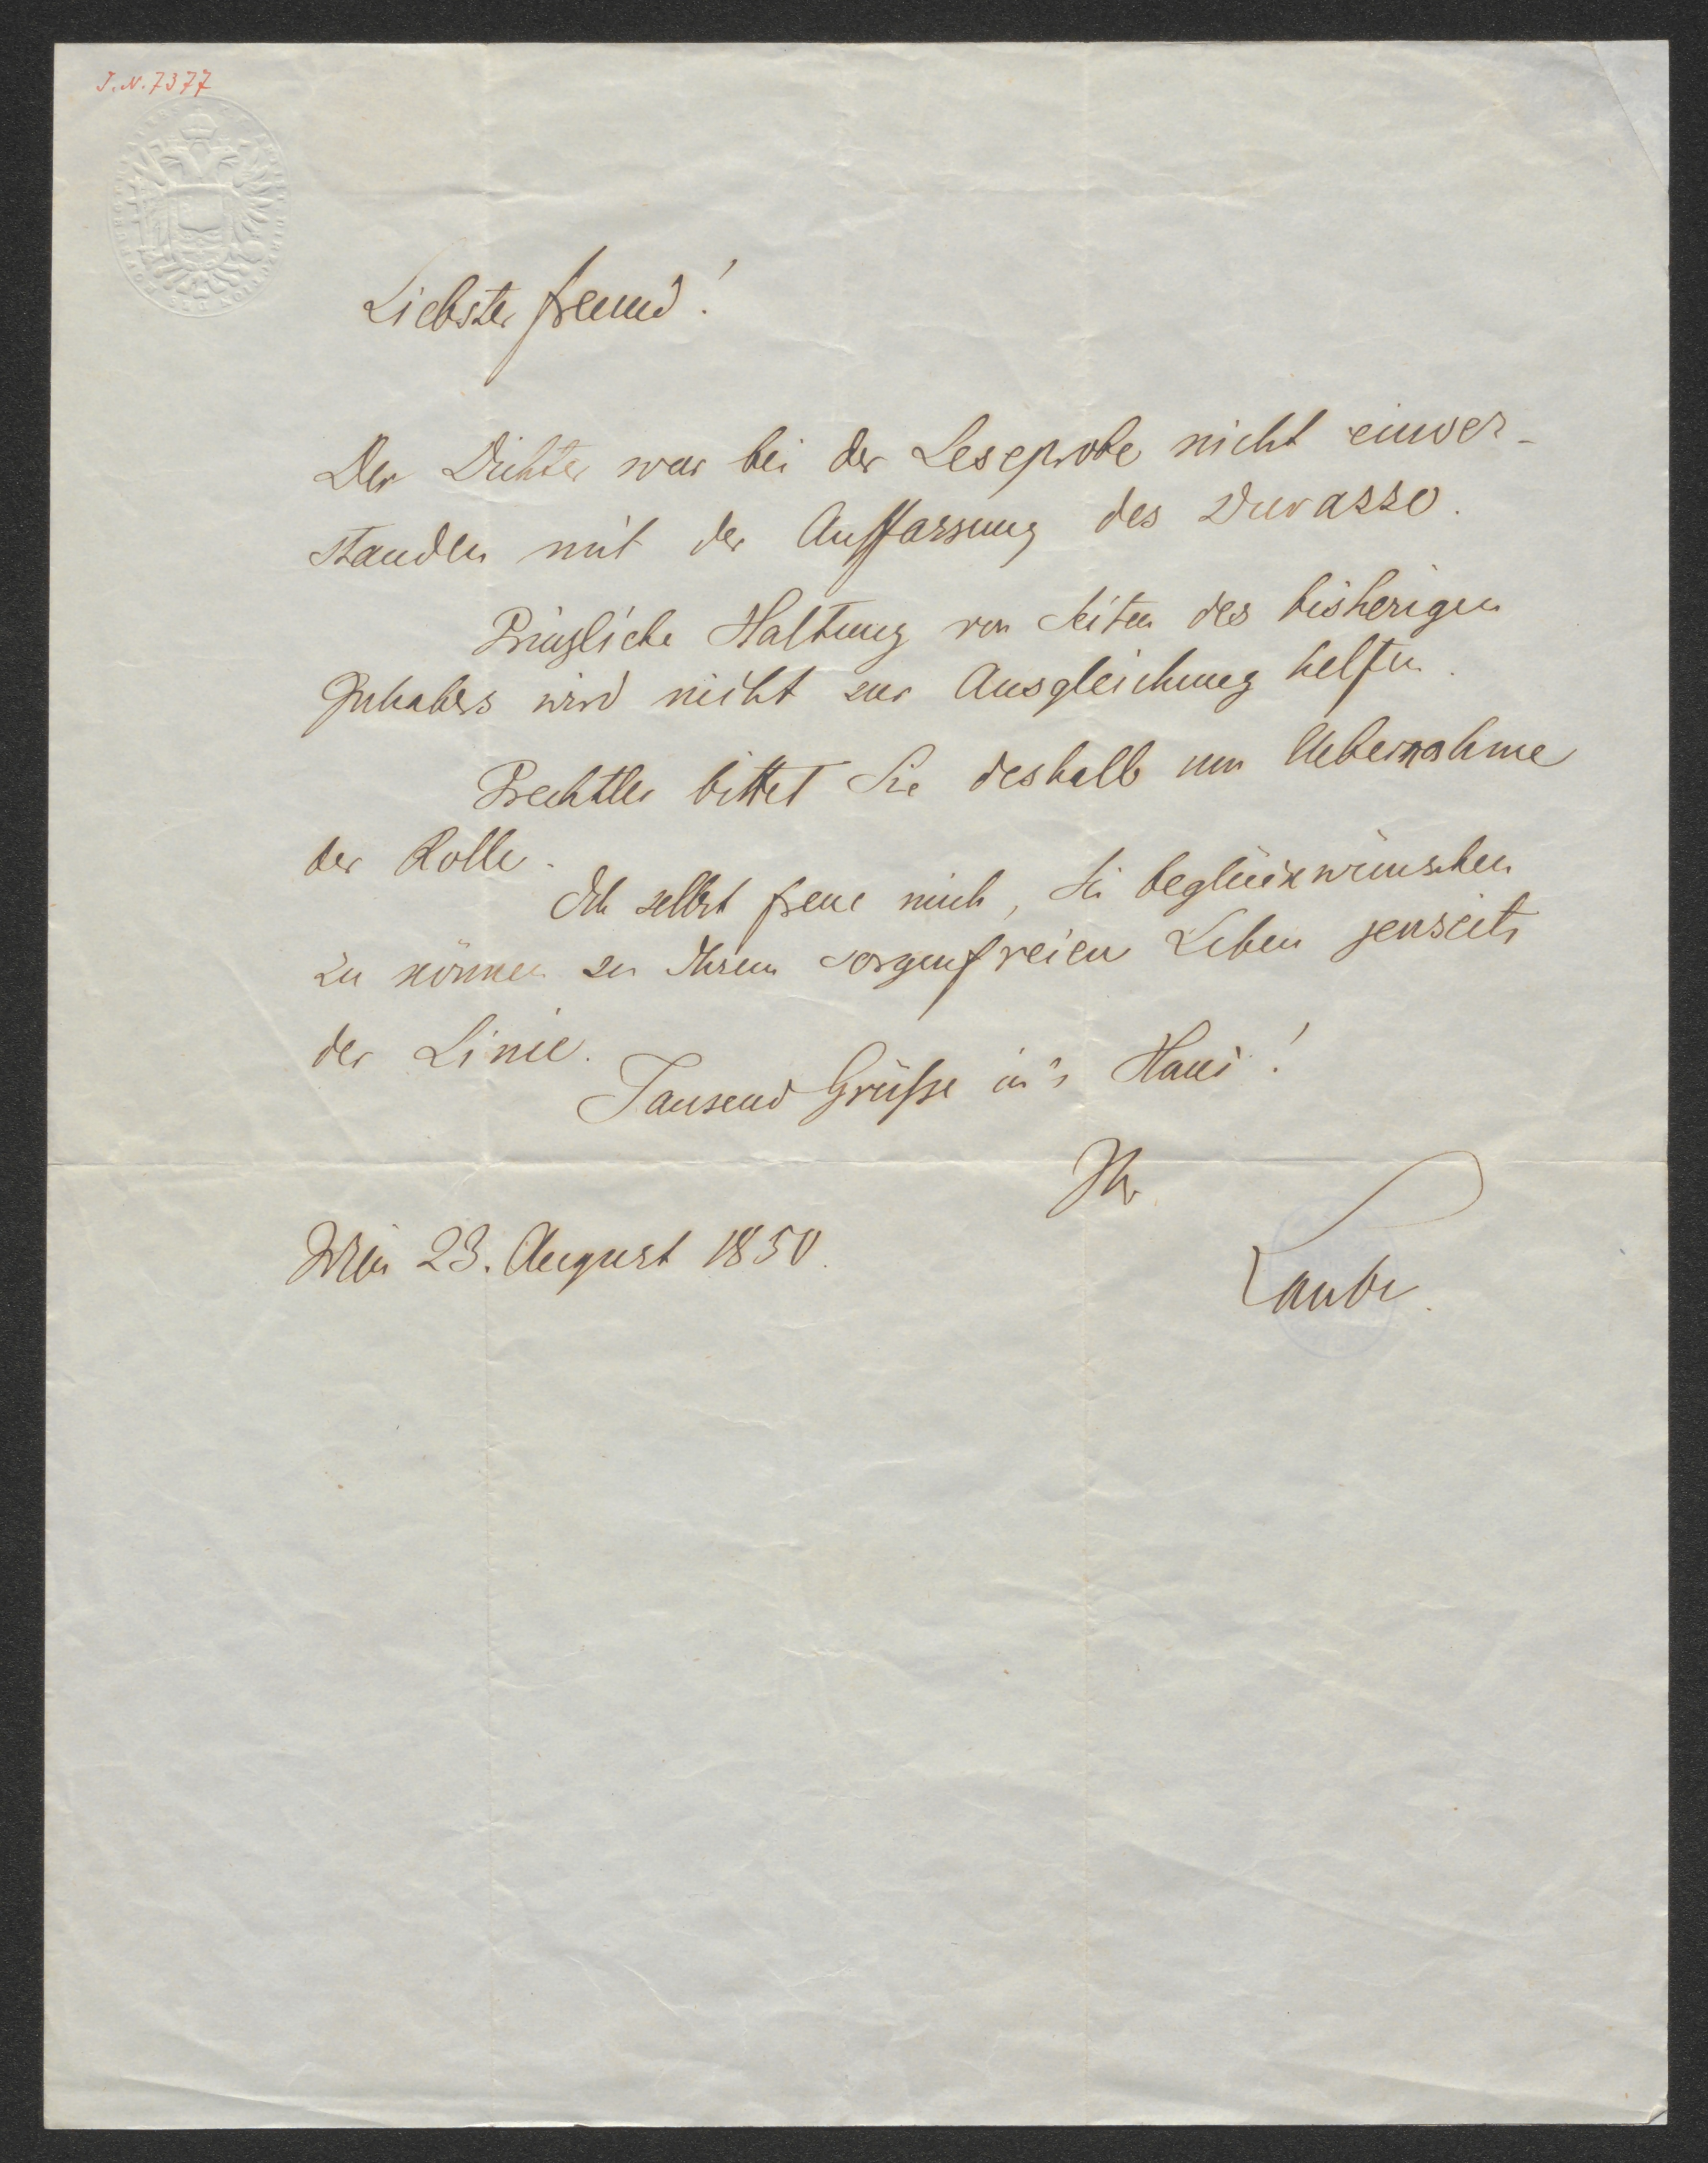 J.N. 7377
Liebster Freund!
Der Dichter war bei der Leseprobe nicht einver-
standen mit der Auffassung des Durazzo.
Haltung von Seiten des bisherigen
Inhabers wird nicht zur Ausgleichung helfen.
Prechtler bittet Sie deshalb um Uebernahme
der Rolle.
Ich selbst freue mich, Sie beglückwünschen
zu können zu Ihrem sorgenfreien Leben jenseits
der Linie.
Tausend Grüße in's Haus!
Ihr
Wien 23. August 1850.
Laube.